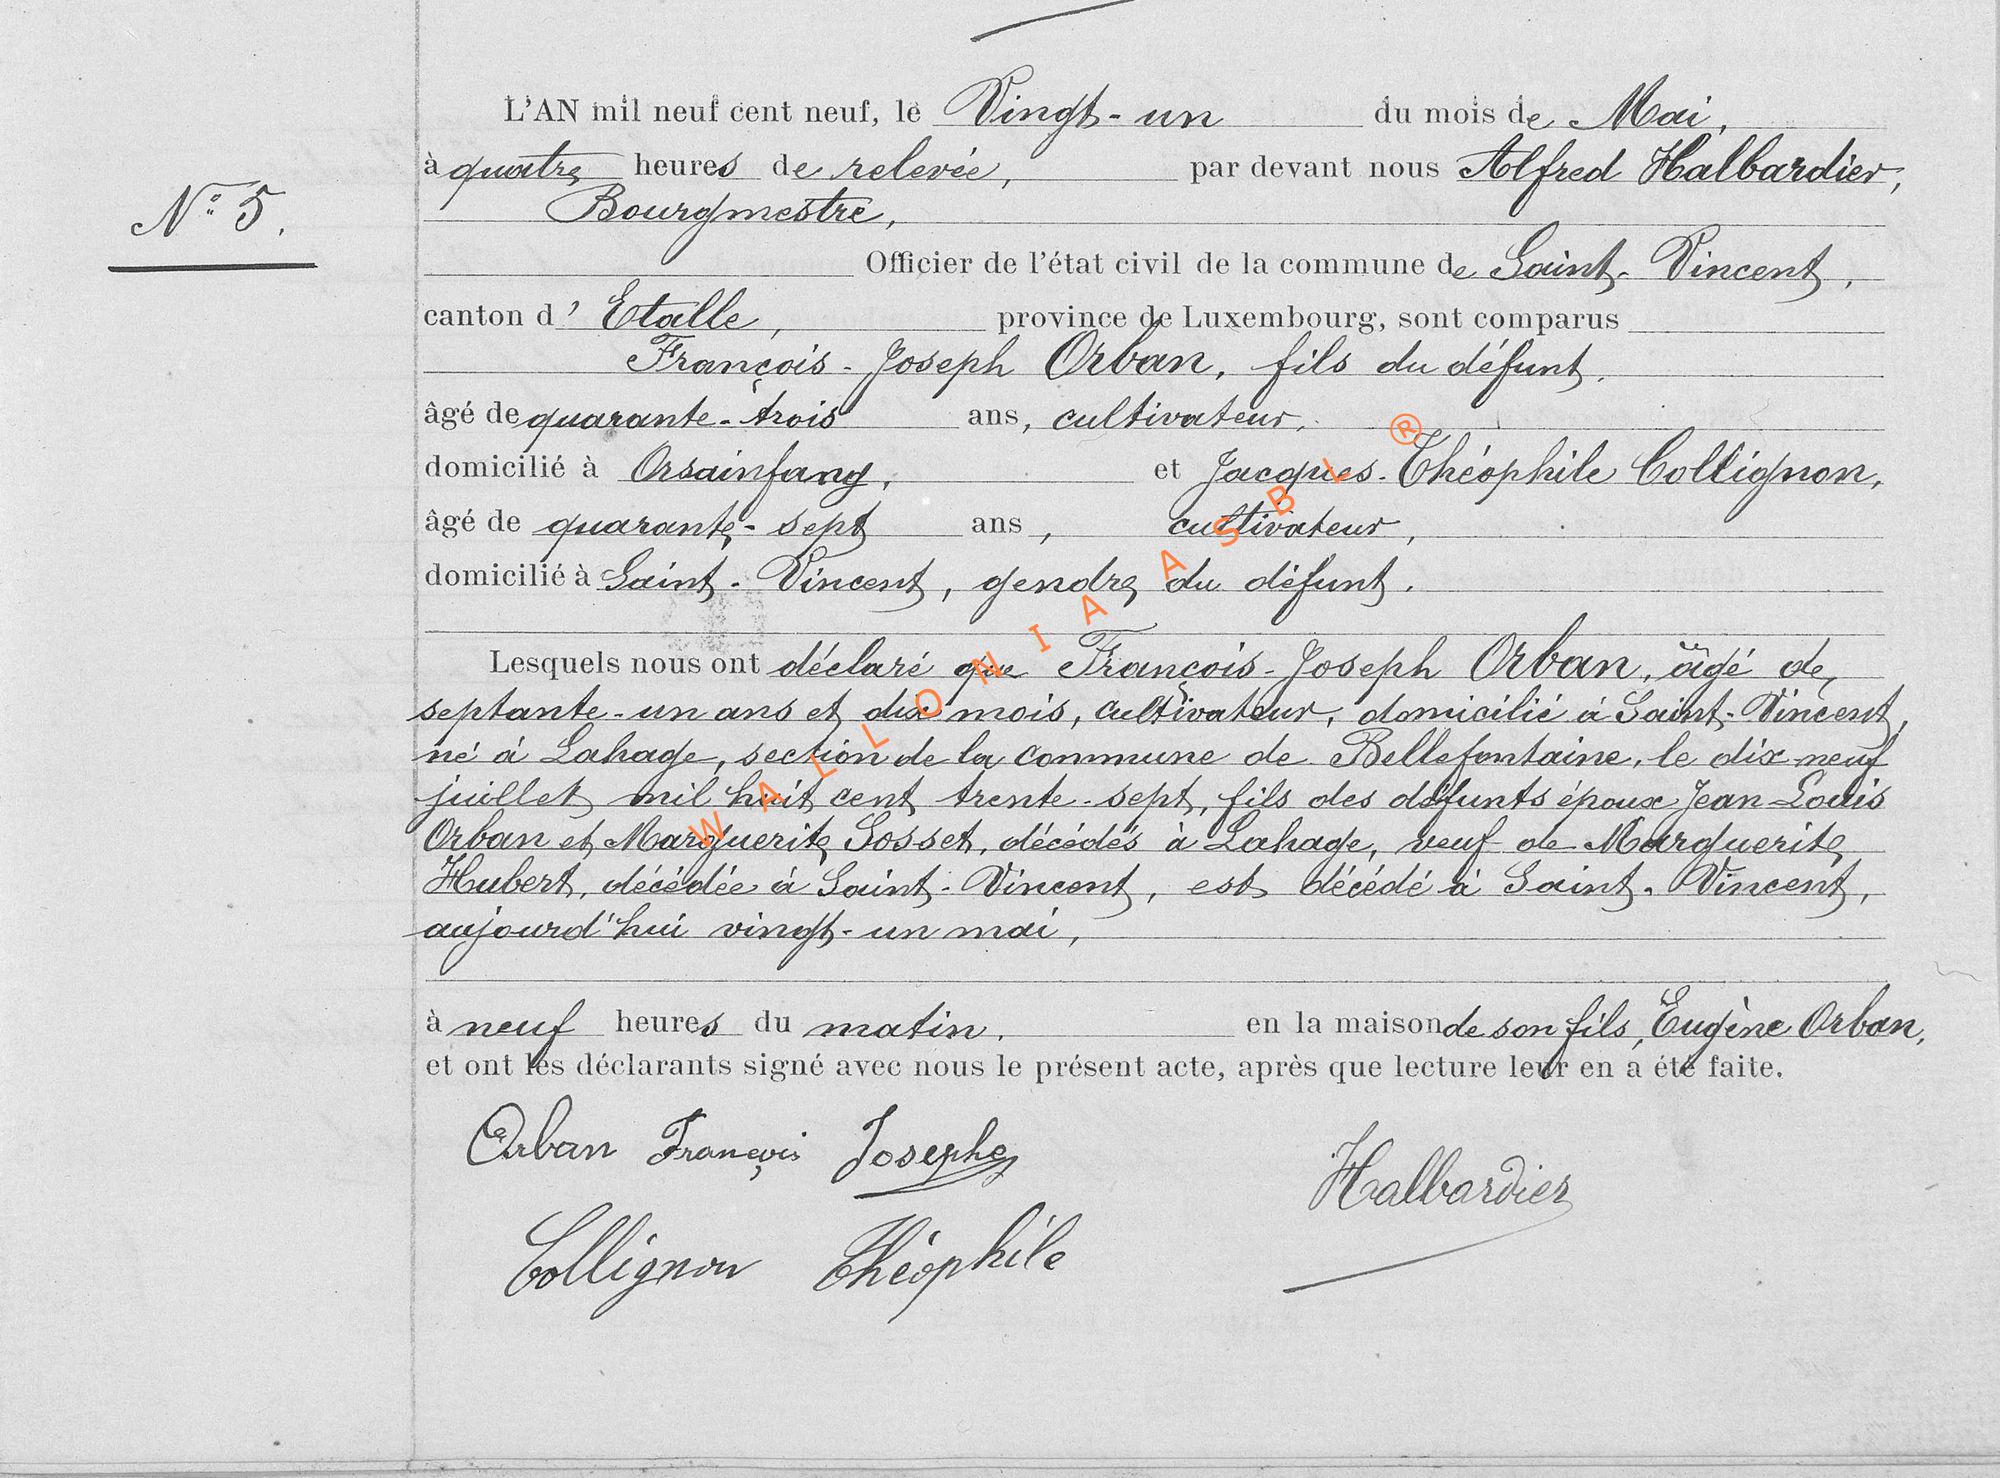 L'AN mil neuf cent neuf, le Vingt-un du mois de Mai,
à quatre heures de relevée, par devant nous Alfred Halbardier,
N° 5.
Bourgmestre,
Officier de l'état civil de la commune de Saint-Vincent,
canton d' Etalle, province de Luxembourg, sont comparus
François-Joseph Orban, fils du défunt,
âgé de quarante-trois ans, cultivateur,
domicilié à Orsainfang, et Jacques-Théophile Collignon,
âgé de quarante-sept ans, cultivateur,
domicilié à Saint-Vincent, gendre du défunt.
Lesquels nous ont déclaré que François-Joseph Orban, âgé de
septante-un ans et dix mois, cultivateur, domicilié à Saint-Vincent,
né à Lahage, section de la commune de Bellefontaine, le dix-neuf
juillet mil huit cent trente-sept, fils des défunts époux Jean-Louis
Orban et Marguerite Gosset, décédés à Lahage, veuf de Marguerite
Hubert, décédée à Saint-Vincent, est décédé à Saint-Vincent,
aujourd'hui vingt-un mai,
à neuf heures du matin, en la maison de son fils, Eugène Orban,
et ont les déclarants signé avec nous le présent acte, après que lecture leur en a été faite.
Orban François Josephe
Halbardier
Collignon Théophile
WALLONIA ASBL ®